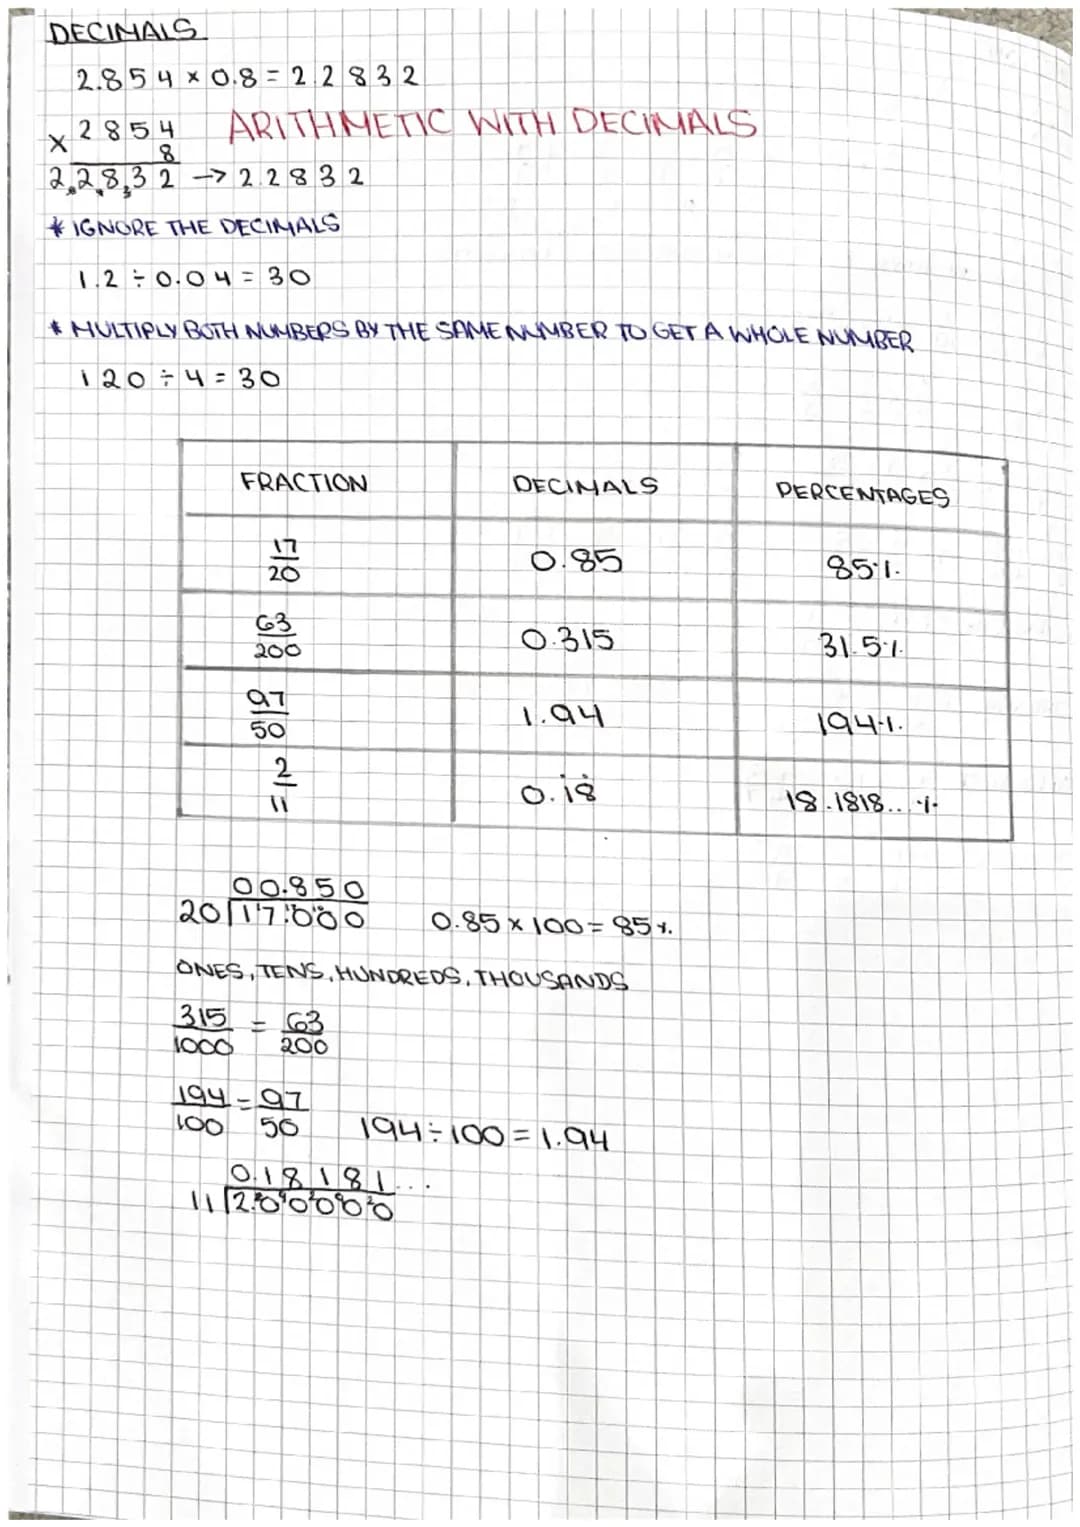 DECIMALS
2.854 × 0.8 = 2.2832
× 2854
8
ARITHMETIC WITH DECIMALS
22832 → 2.2832
* IGNORE THE DECIMALS
1.2 ÷ 0.04 = 30
* MULTIPLY BOTH NUMBERS BY THE SAME NUMBER TO GET A WHOLE NUMBER
120 ÷ 4 = 30
FRACTION DECIMALS PERCENTAGES
17/20 0.85 85%
63/200 0.315 31.5%
97/50 1.94 194%
2/11 0.i̇8̇ 18.1818.. %
00.850
20 17.000 0.85 × 100 = 85%
ONES, TENS, HUNDREDS, THOUSANDS
315/1000 = 63/200
194/100 = 97/50 194 ÷ 100 = 1.94
0.18181...
11 2.00000